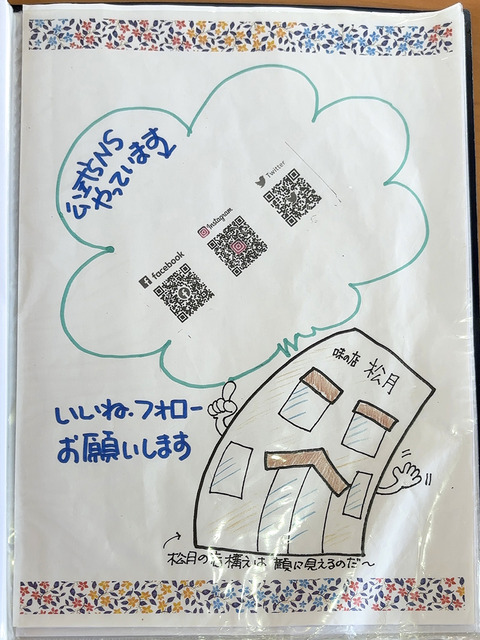 公式SNS
やっています
facebook
Instagram
Twitter
味の店 松月
いいね・フォロー
お願いします
松月の店構えは 顔に見えるのだ〜